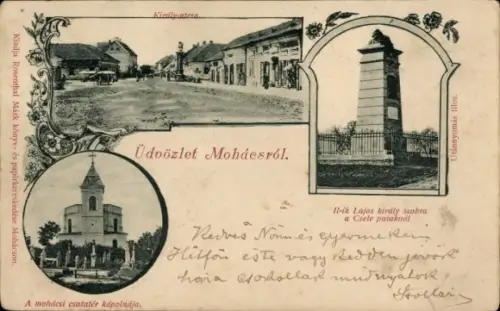 Király-utcza.
Üdvözlet Mohácsról.
II-ik Lajos király szobra
a Csele pataknál
A mohácsi csatatér kápolnája.
Kiadja Rosenthal Márk könyv- és papirkereskedése Mohácson.
Utánnyomás tilos.
Kedves Nőm és gyermekeim
Hétfőn este vagy kedden jövök
haza csokollak mindnyájatok